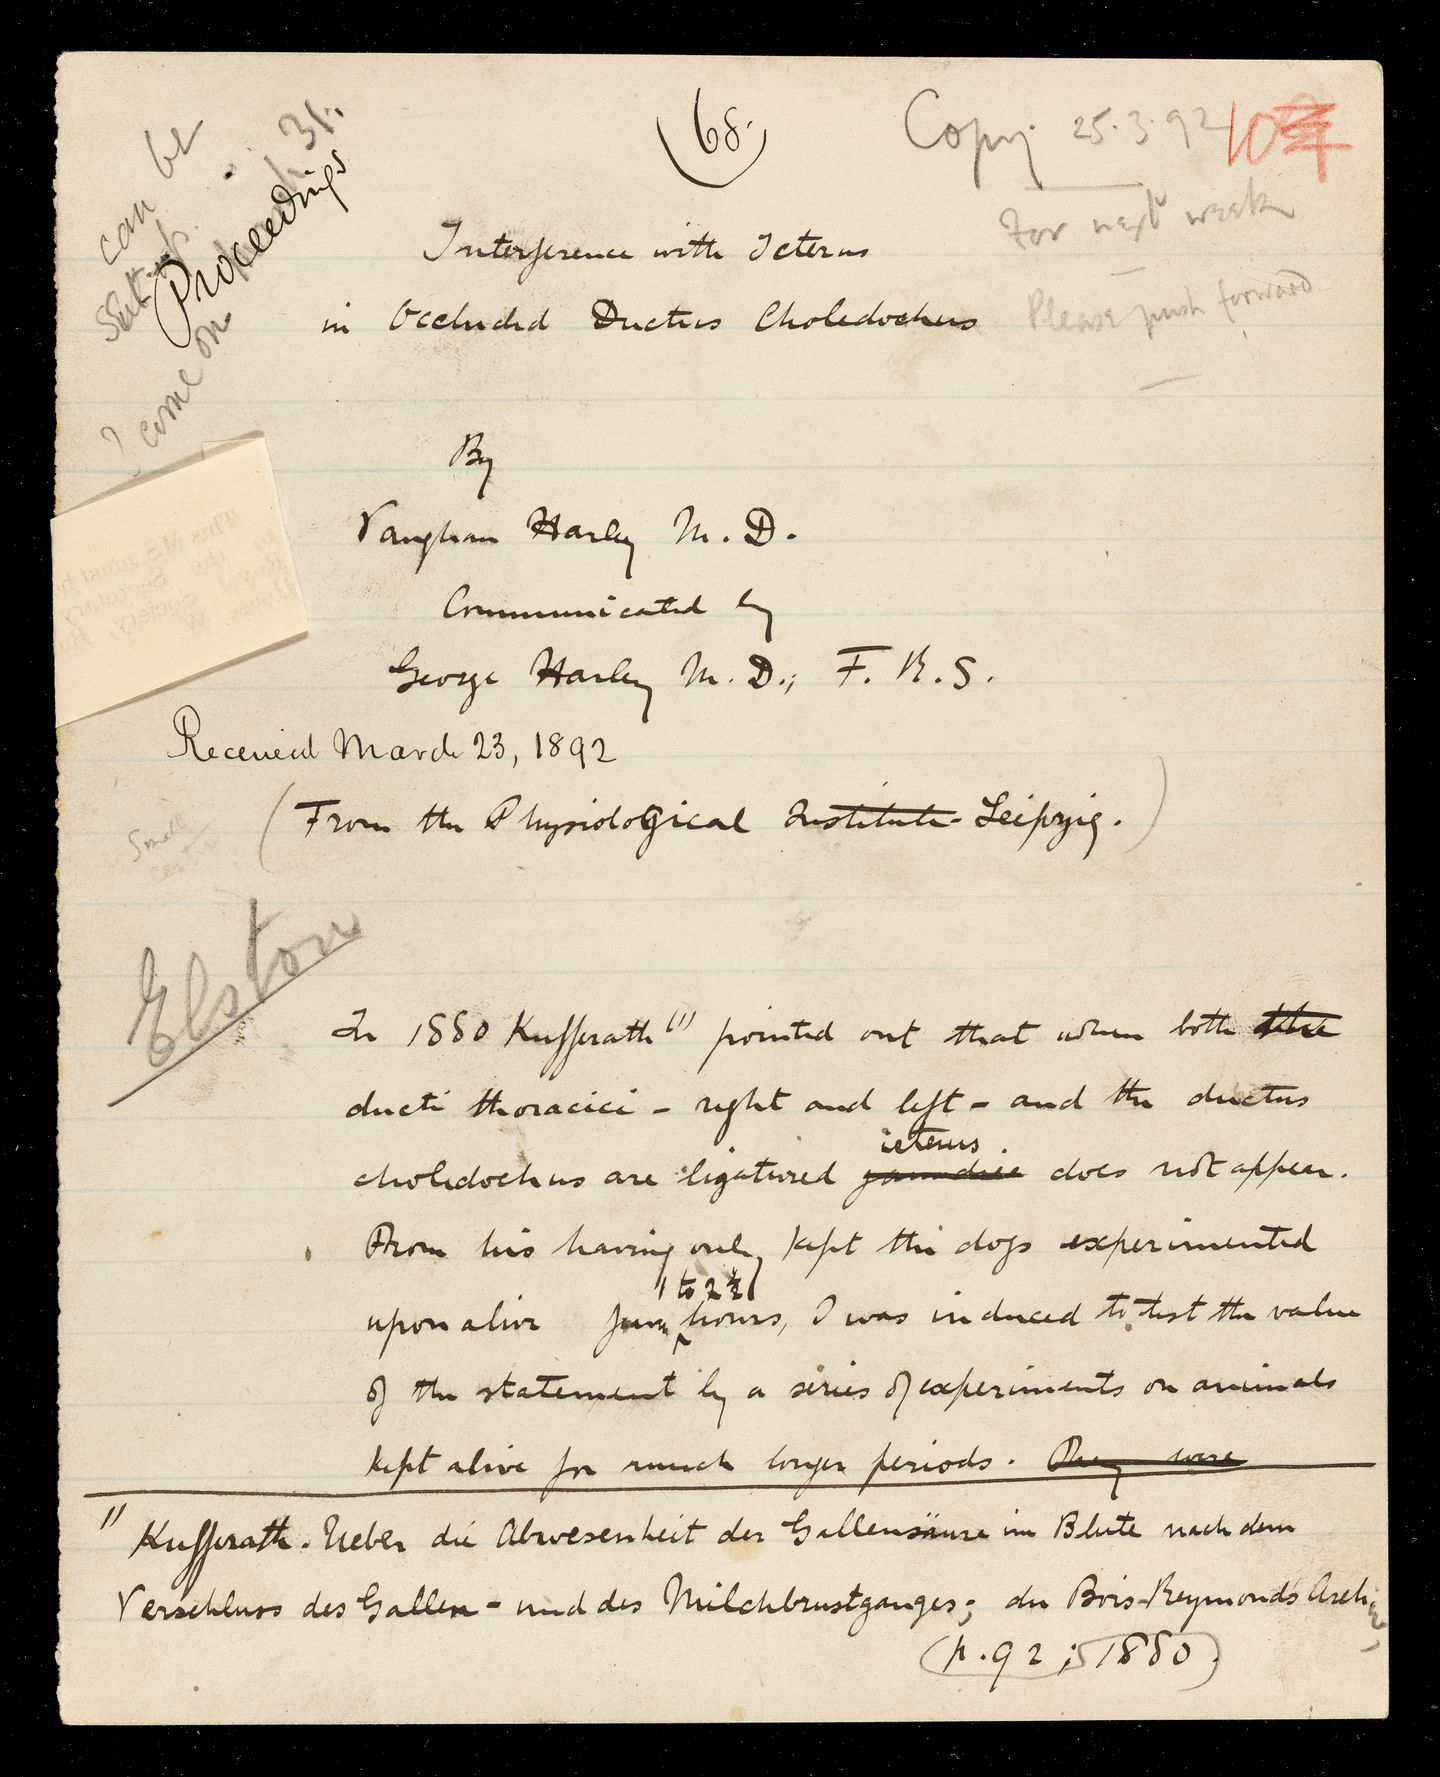 68.
Copy. 25.3.92 10
For next week
Please push forward
can be
set up
Proceedings
31.
come on
Interference with Icterus
in Occluded Ductus Choledochus
By
Vaughan Harley M. D.
Communicated by
George Harley M. D., F. R. S.
Received March 23, 1892
(From the Physiological Institute Leipzig.)
Small
Elston
In 1880 Kufferath (1) pointed out that when both the
ducti thoracici - right and left - and the ductus
icterus
choledochus are ligatured jaundice does not appear.
From his having only kept the dogs experimented
1 to 2½
upon alive hours, I was induced to test the value
of the statement by a series of experiments on animals
kept alive for much longer periods. They were
(1) Kufferath. Ueber die Abwesenheit der Gallensäure im Blute nach dem
Verschluss des Gallen - und des Milchbrustganges; du Bois-Reymond's Archiv,
(p. 92; 1880).